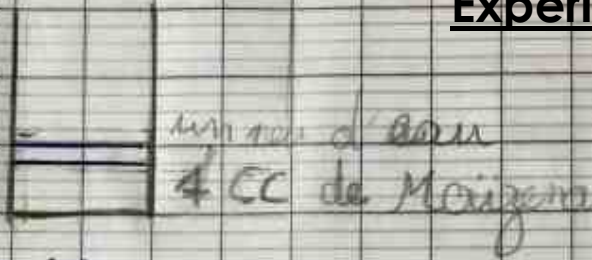 Experi
d'eau
4 CC de Maïzena